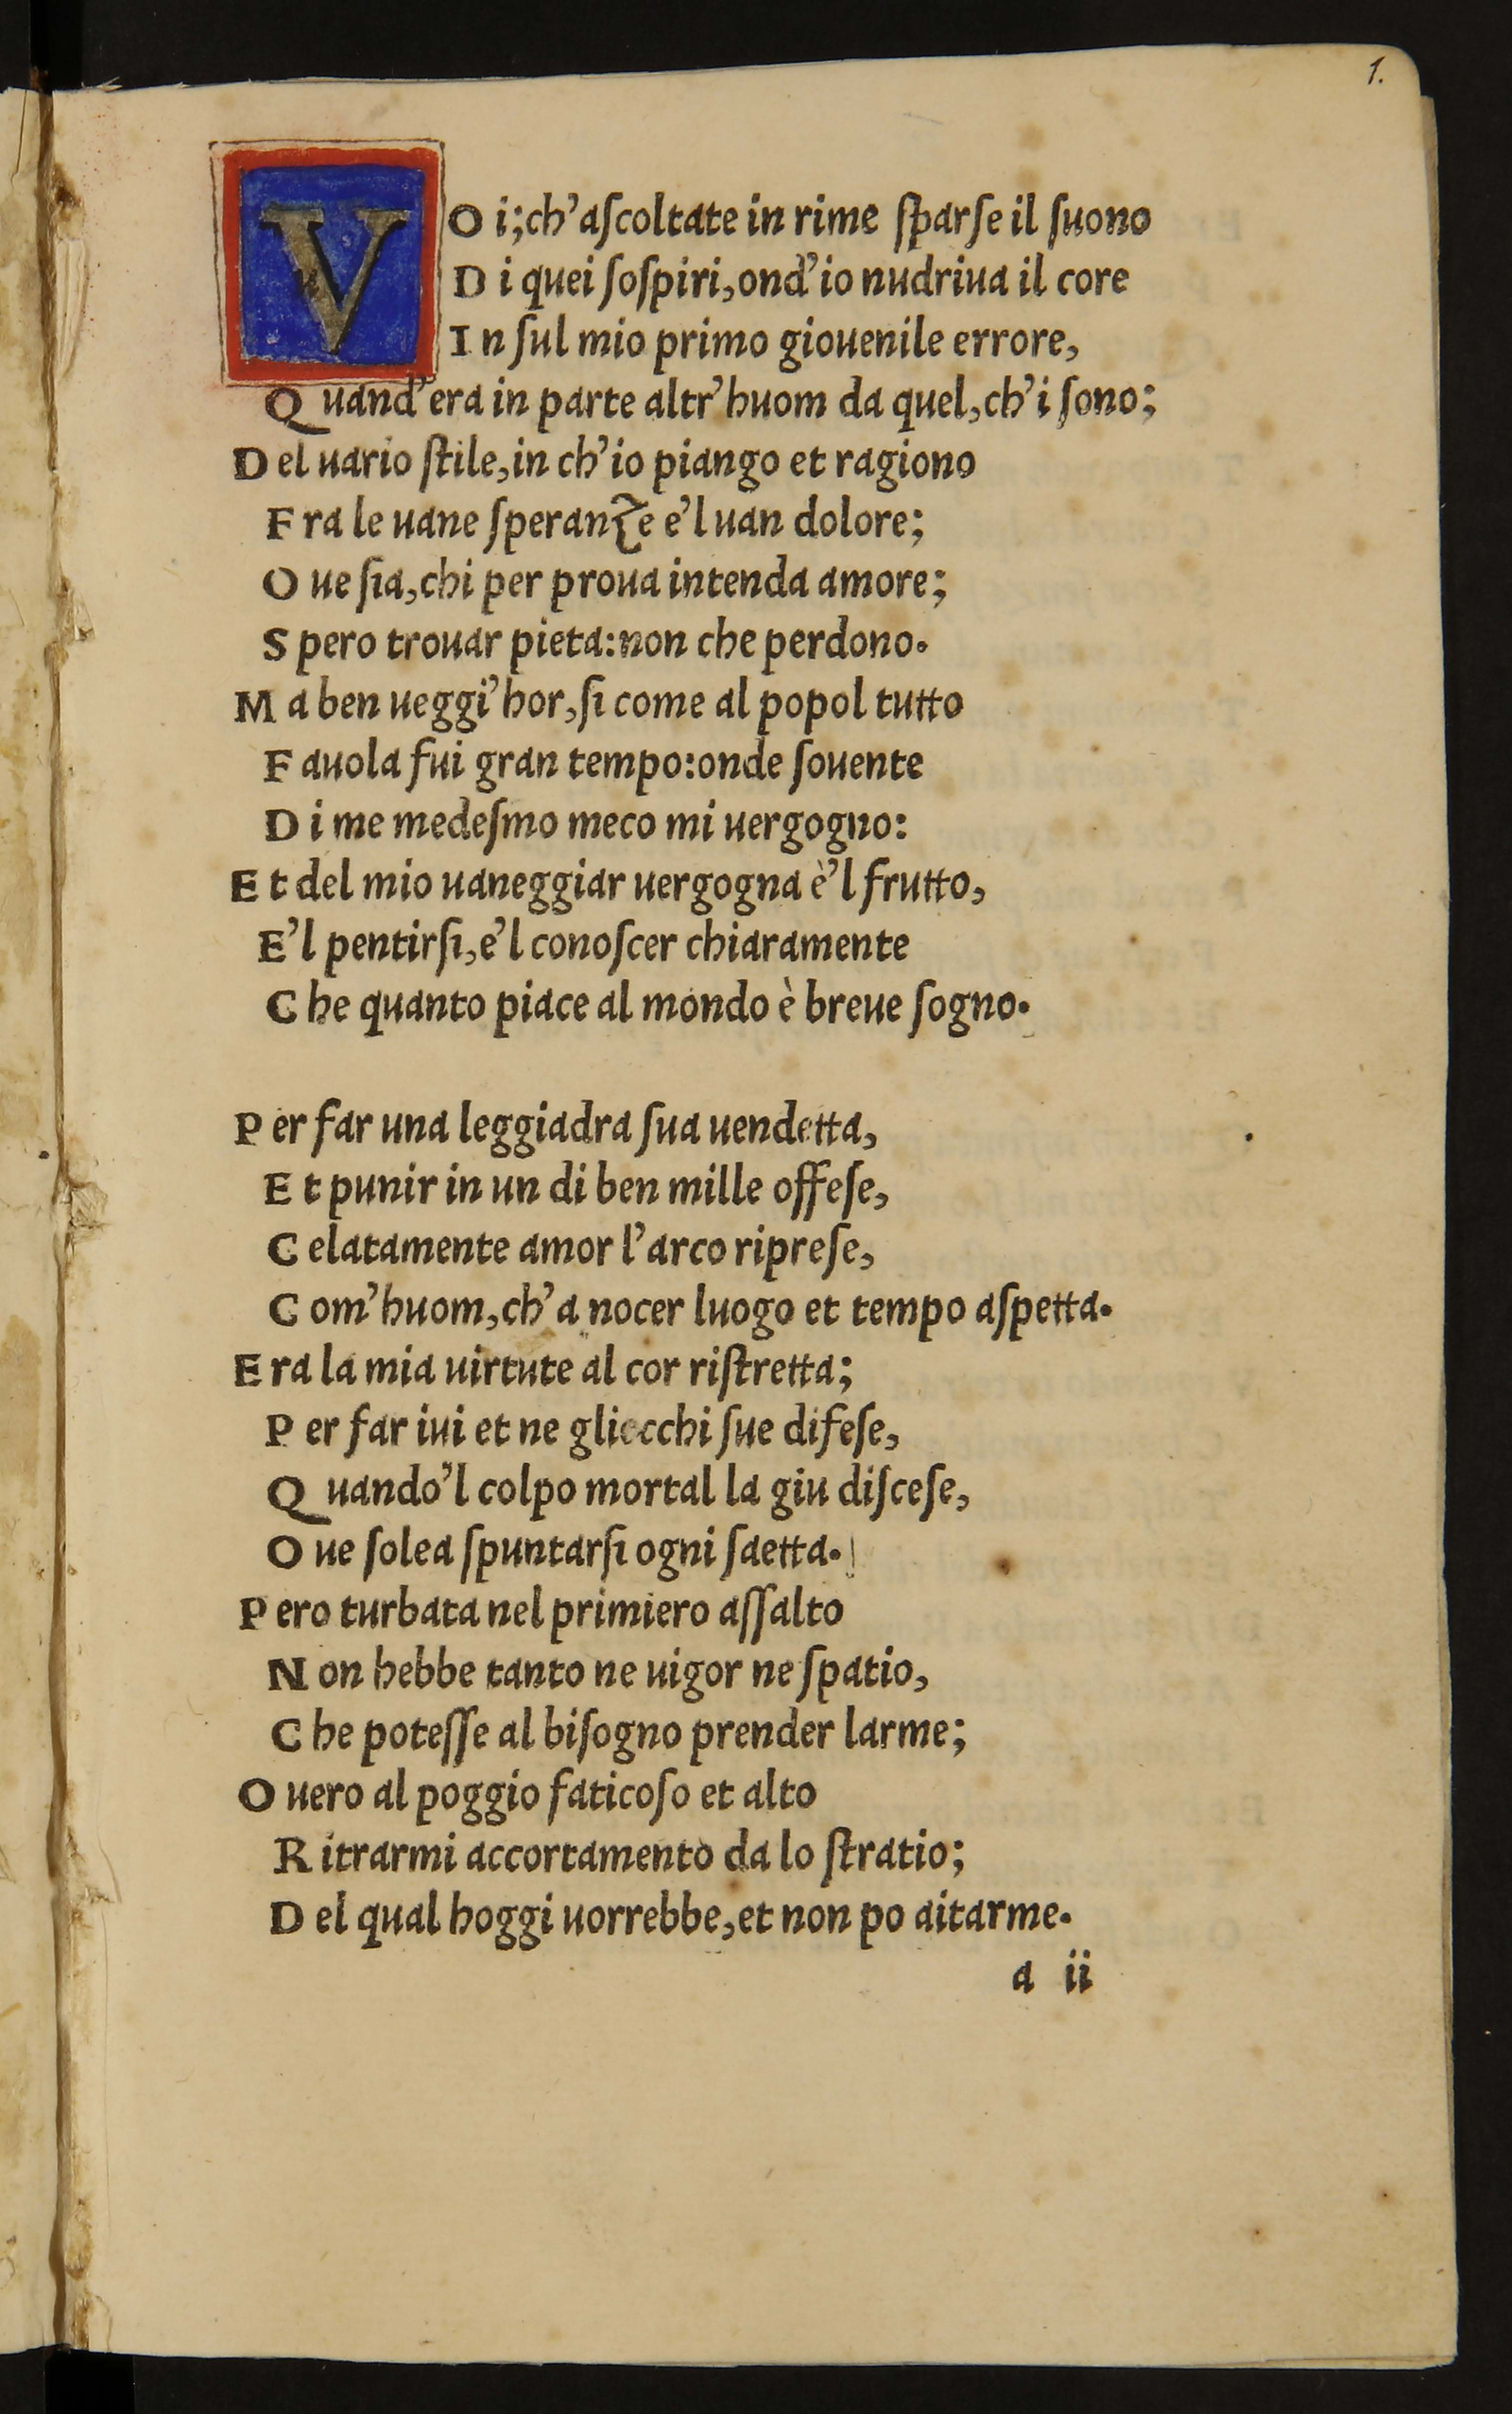 1.
VO i; ch'aſcoltate in rime ſparſe il ſuono
D i quei ſoſpiri, ond'io nudriua il core
I n ſul mio primo giouenile errore,
Q uand'era in parte altr'huom da quel, ch'i ſono;
D el uario ſtile, in ch'io piango et ragiono
F ra le uane ſperanze e'l uan dolore;
O ue ſia, chi per proua intenda amore;
S pero trouar pieta: non che perdono.
M a ben ueggi'hor, ſi come al popol tutto
F auola fui gran tempo: onde ſouente
D i me medeſmo meco mi uergogno:
E t del mio uaneggiar uergogna è'l frutto,
E'l pentirſi, e'l conoſcer chiaramente
C he quanto piace al mondo è breue ſogno.
P er far una leggiadra ſua uendetta,
E t punir in un di ben mille offeſe,
C elatamente amor l'arco ripreſe,
C om'huom, ch'a nocer luogo et tempo aſpetta.
E ra la mia uirtute al cor riſtretta;
P er far iui et ne gliocchi ſue difeſe,
Q uando'l colpo mortal la giu diſceſe,
O ue ſolea ſpuntarſi ogni ſaetta.
P ero turbata nel primiero aſſalto
N on hebbe tanto ne uigor ne ſpatio,
C he poteſſe al biſogno prender larme;
O uero al poggio faticoſo et alto
R itrarmi accortamento da lo ſtratio;
D el qual hoggi uorrebbe, et non po aitarme.
a ii